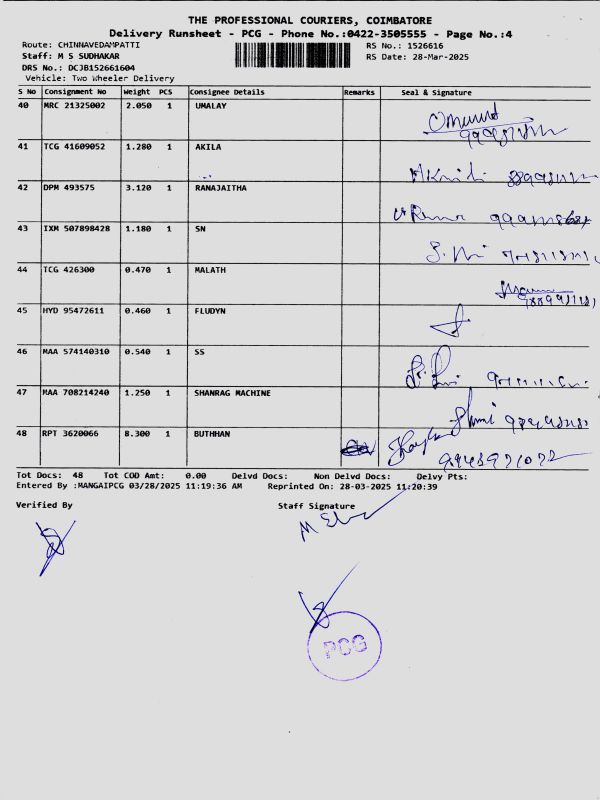 THE PROFESSIONAL COURIERS, COIMBATORE
Delivery Runsheet - PCG - Phone No.:0422-3505555 - Page No.:4
Route: CHINNAVEDAMPATTI RS No.: 1526616
Staff: M S SUDHAKAR RS Date: 28-Mar-2025
DRS No.: DCJB152661604
Vehicle: Two Wheeler Delivery
S No Consignment No Weight PCS Consignee Details Remarks Seal & Signature
40 MRC 21325002 2.050 1 UMALAY
41 TCG 41609052 1.280 1 AKILA
42 DPM 493575 3.120 1 RANAJAITHA
43 IXM 507898428 1.180 1 SN
44 TCG 426300 0.470 1 MALATH
45 HYD 95472611 0.460 1 FLUDYN
46 MAA 574140310 0.540 1 SS
47 MAA 708214240 1.250 1 SHANRAG MACHINE
48 RPT 3620066 8.300 1 BUTHHAN
Tot Docs: 48 Tot COD Amt: 0.00 Delvd Docs: Non Delvd Docs: Delvy Pts:
Entered By :MANGAIPCG 03/28/2025 11:19:36 AM Reprinted On: 28-03-2025 11:20:39
Verified By Staff Signature
PCG